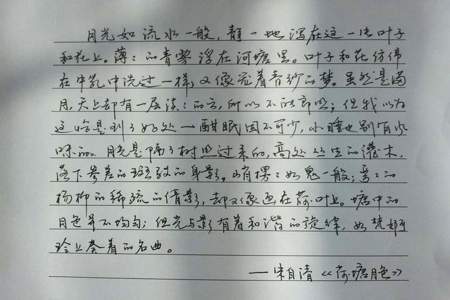 月光如流水一般，静：地泻在这一片叶子
和花上。薄：的青雾浮在荷塘里。叶子和花仿佛
在牛乳中洗过一样；又像笼着青纱的梦。虽然是满
月，天上却有一层淡：的云，所以不能朗照；但我以为
这恰是到了好处——酣眠固不可少，小睡也别有风
味的。月光是隔了树照过来的，高处丛生的灌木，
落下参差的斑驳的黑影。峭楞：如鬼一般；弯：的
杨柳的稀疏的倩影，却又像画在荷叶上。塘中的
月色并不均匀；但光与影有着和谐的旋律，如梵婀
玲上奏着的名曲。
——朱自清《荷塘月色》